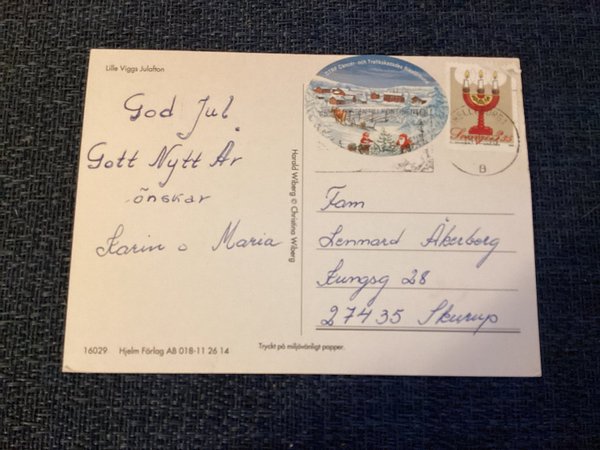 Lille Viggs Julafton
God Jul
Gott Nytt År
önskar
Karin o Maria
16029 Hjelm Förlag AB 018-11 26 14
Harald Wiberg © Christina Wiberg
Tryckt på miljövänligt papper.
Cancer- och Trafikskadades
Sverige
B
Fam
Lennard Åkerborg
Kungsg 28
27435 Skurup